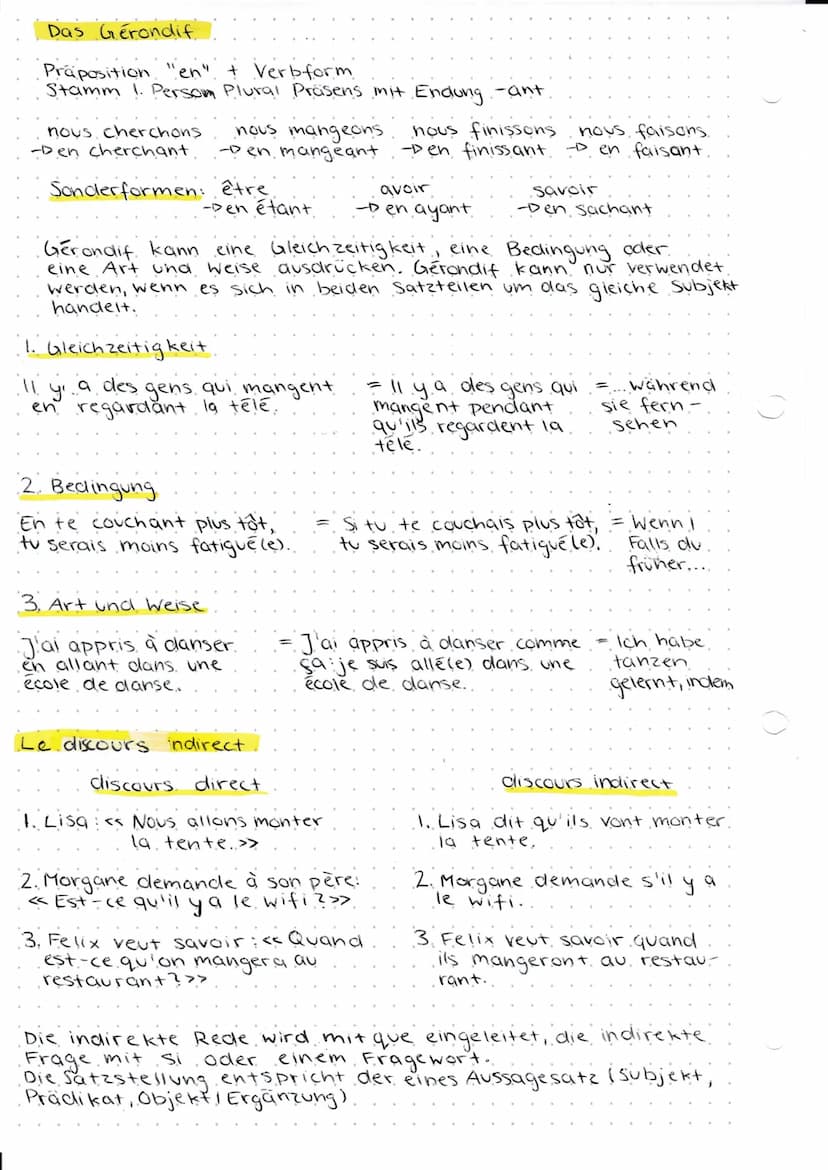 Das Gérondif
Präposition "en" + Verbform
Stamm 1. Person Plural Präsens mit Endung -ant
nous cherchons nous mangeons nous finissons nous faisons
→ en cherchant → en mangeant → en finissant → en faisant
Sonderformen: être avoir savoir
→ en étant → en ayant → en sachant
Gérondif kann eine Gleichzeitigkeit, eine Bedingung oder
eine Art und Weise ausdrücken. Gérondif kann nur verwendet
werden, wenn es sich in beiden Satzteilen um das gleiche Subjekt
handelt.
1. Gleichzeitigkeit
Il y a des gens qui mangent
en regardant la télé.
= Il y a des gens qui
mangent pendant
qu'ils regardent la
télé.
= ... während
sie fern-
sehen
2. Bedingung
En te couchant plus tôt,
tu serais moins fatigué(e).
= Si tu te couchais plus tôt,
tu serais moins fatigué(e).
= Wenn/
Falls du
früher...
3. Art und Weise
J'ai appris à danser
en allant dans une
école de danse.
= J'ai appris à danser comme
ça: je suis allé(e) dans une
école de danse.
= Ich habe
tanzen
gelernt, indem
Le discours indirect
discours direct
discours indirect
1. Lisa: << Nous allons monter
la tente. >>
1. Lisa dit qu'ils vont monter
la tente.
2. Morgane demande à son père:
<< Est-ce qu'il y a le wifi? >>
2. Morgane demande s'il y a
le wifi.
3. Felix veut savoir: << Quand
est-ce qu'on mangera au
restaurant? >>
3. Felix veut savoir quand
ils mangeront au restau-
rant.
Die indirekte Rede wird mit que eingeleitet, die indirekte
Frage mit si oder einem Fragewort.
Die Satzstellung entspricht der eines Aussagesatz (Subjekt,
Prädikat, Objekt/Ergänzung)